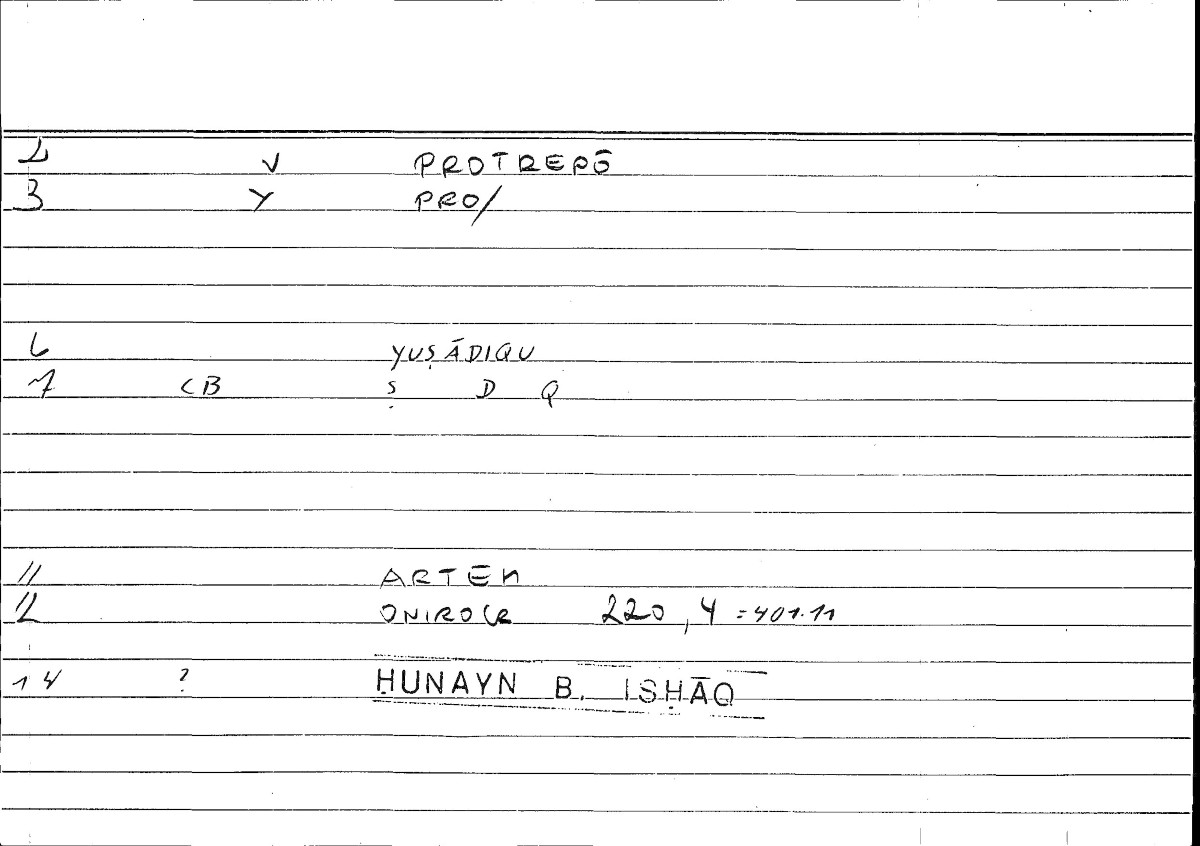 2 V PROTREPŌ
3 Y PRO/
6 YUṢĀDIQU
7 CB Ṣ D Q
11 ARTEM
12 ONIROCR 220,4 = 401.11
14 ? ḤUNAYN B. ISḤĀQ